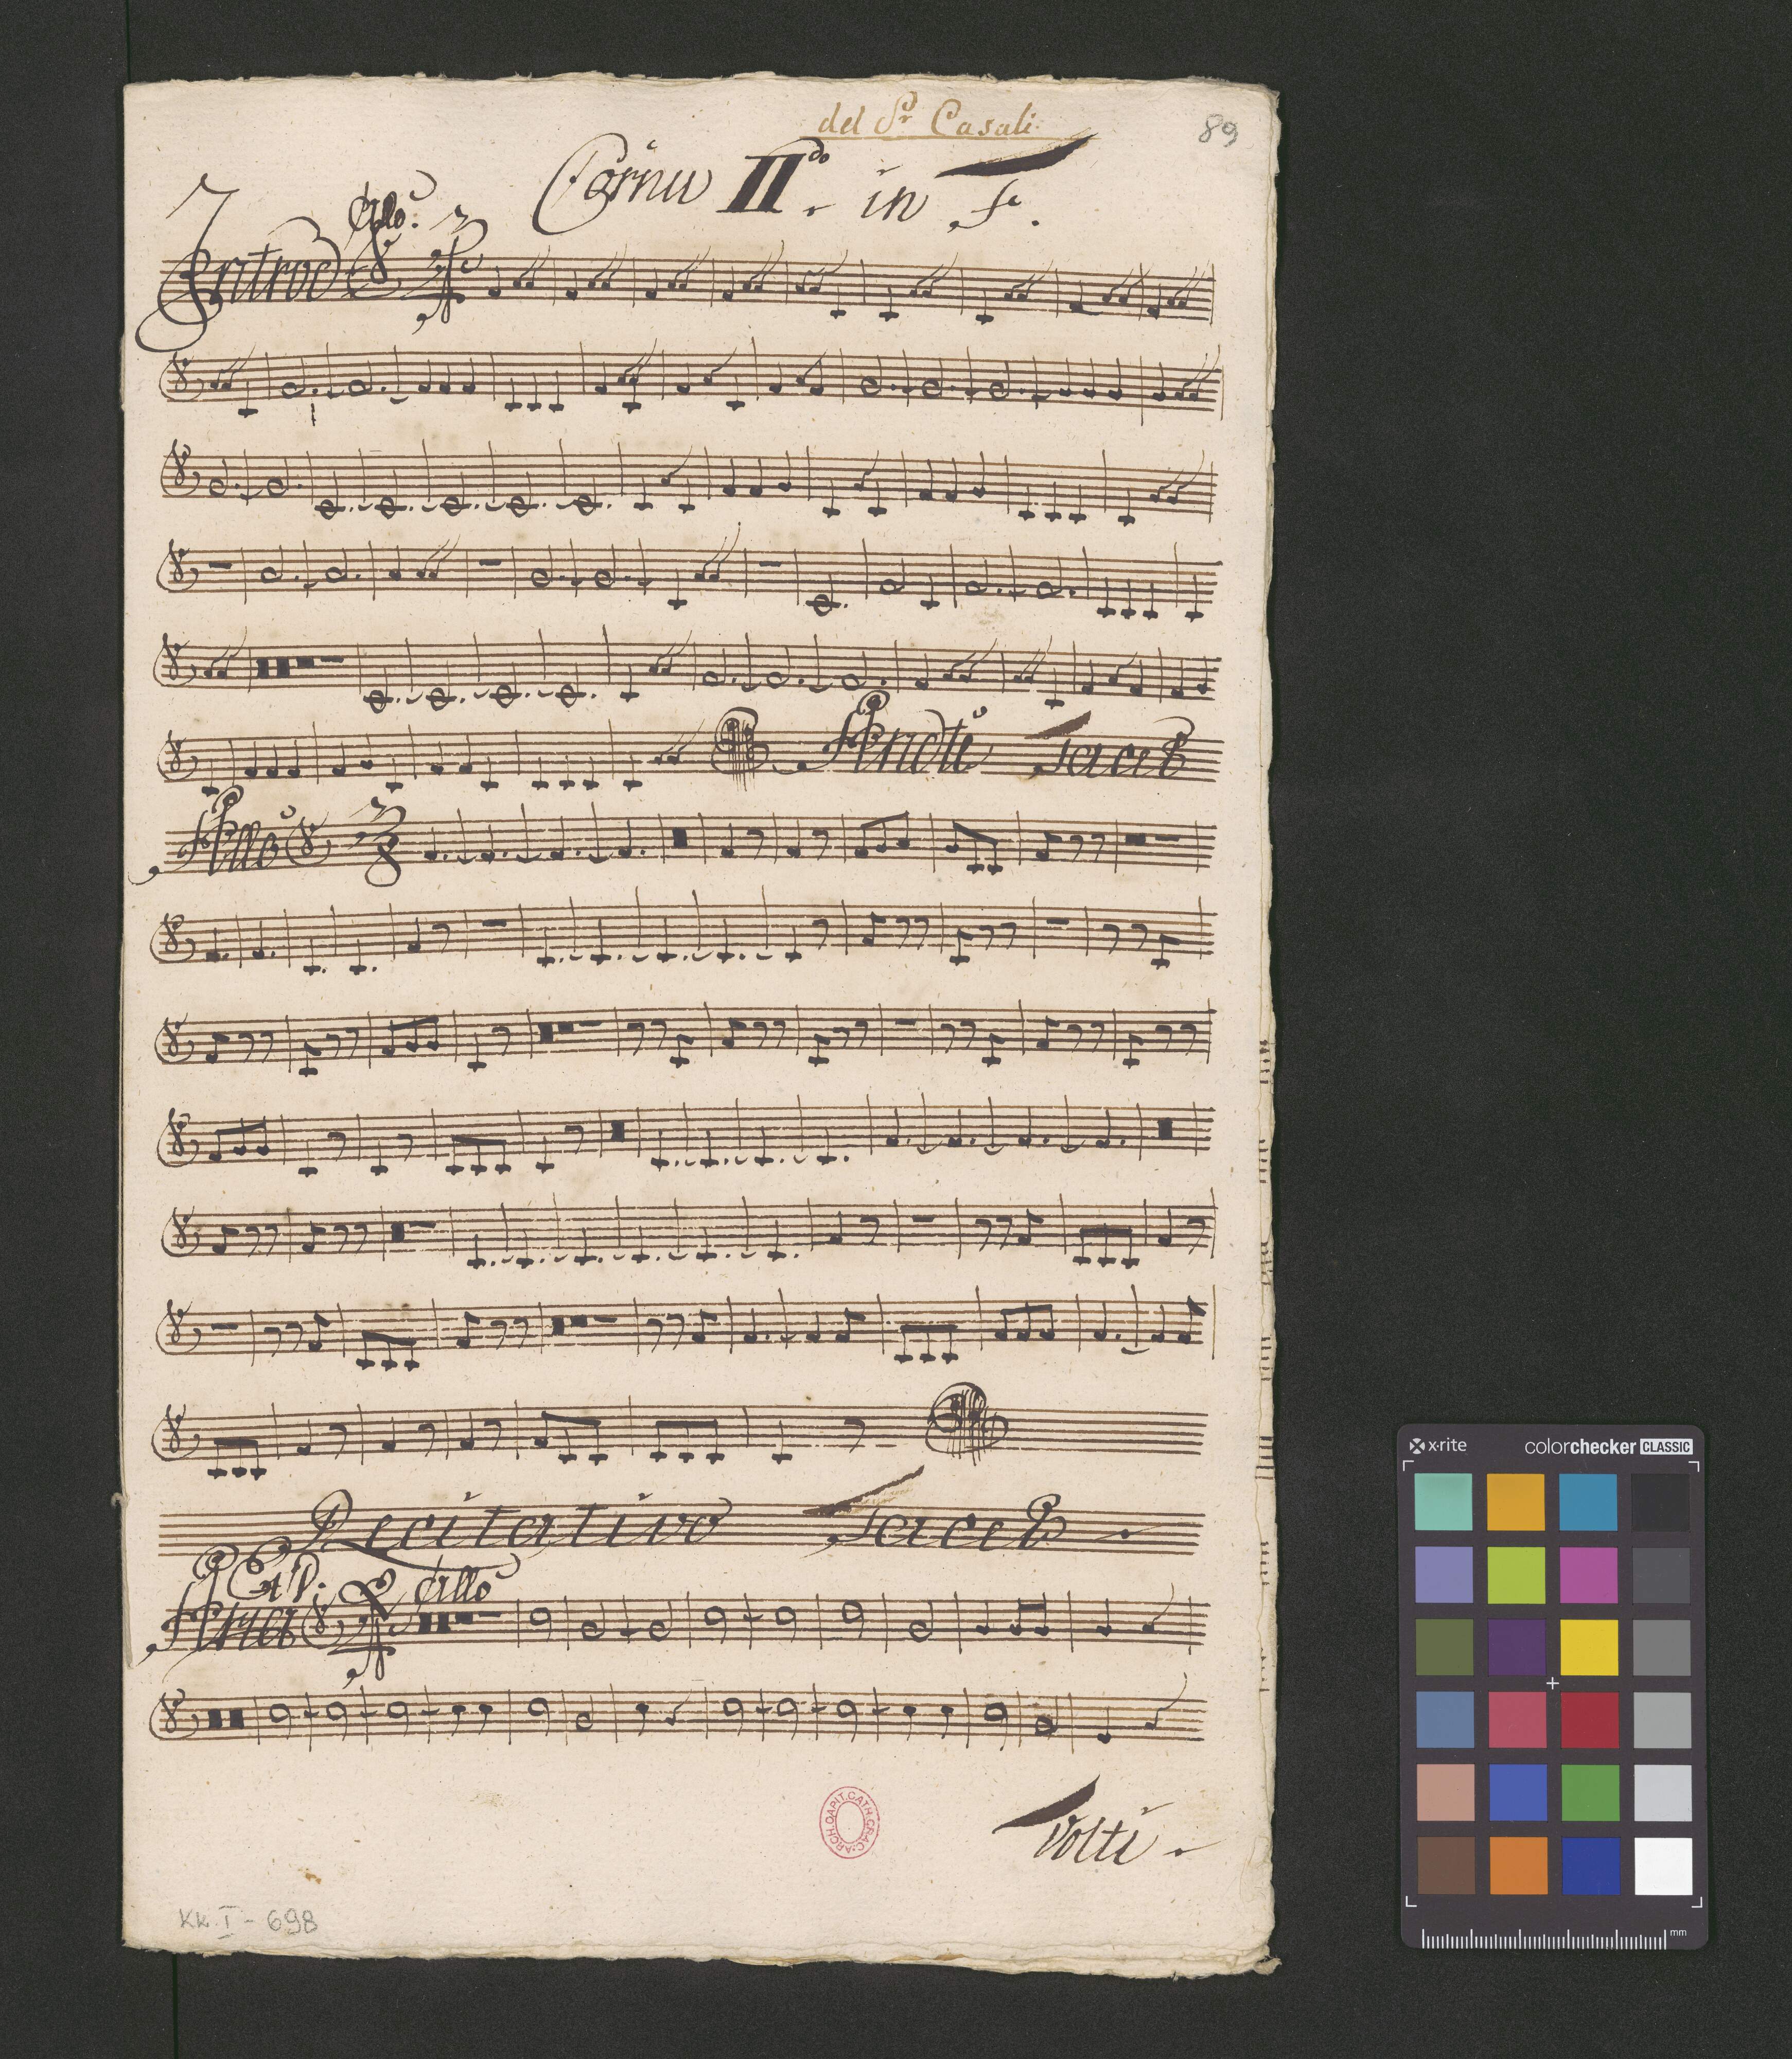 del Sr Casali
89
Cornu IIdo in F.
Allo.
Introd 3/4
Andte Tacet
Allo 3/8
Recitativo Tacet
Cat D. Allo
Arya
Volti
ARCH. CAPIT. CATH. CRAC.
Kk. I - 698
x-rite colorchecker CLASSIC
mm